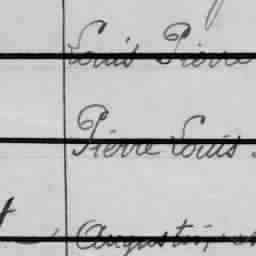 Louis Pierre
Pierre Louis
Augustin